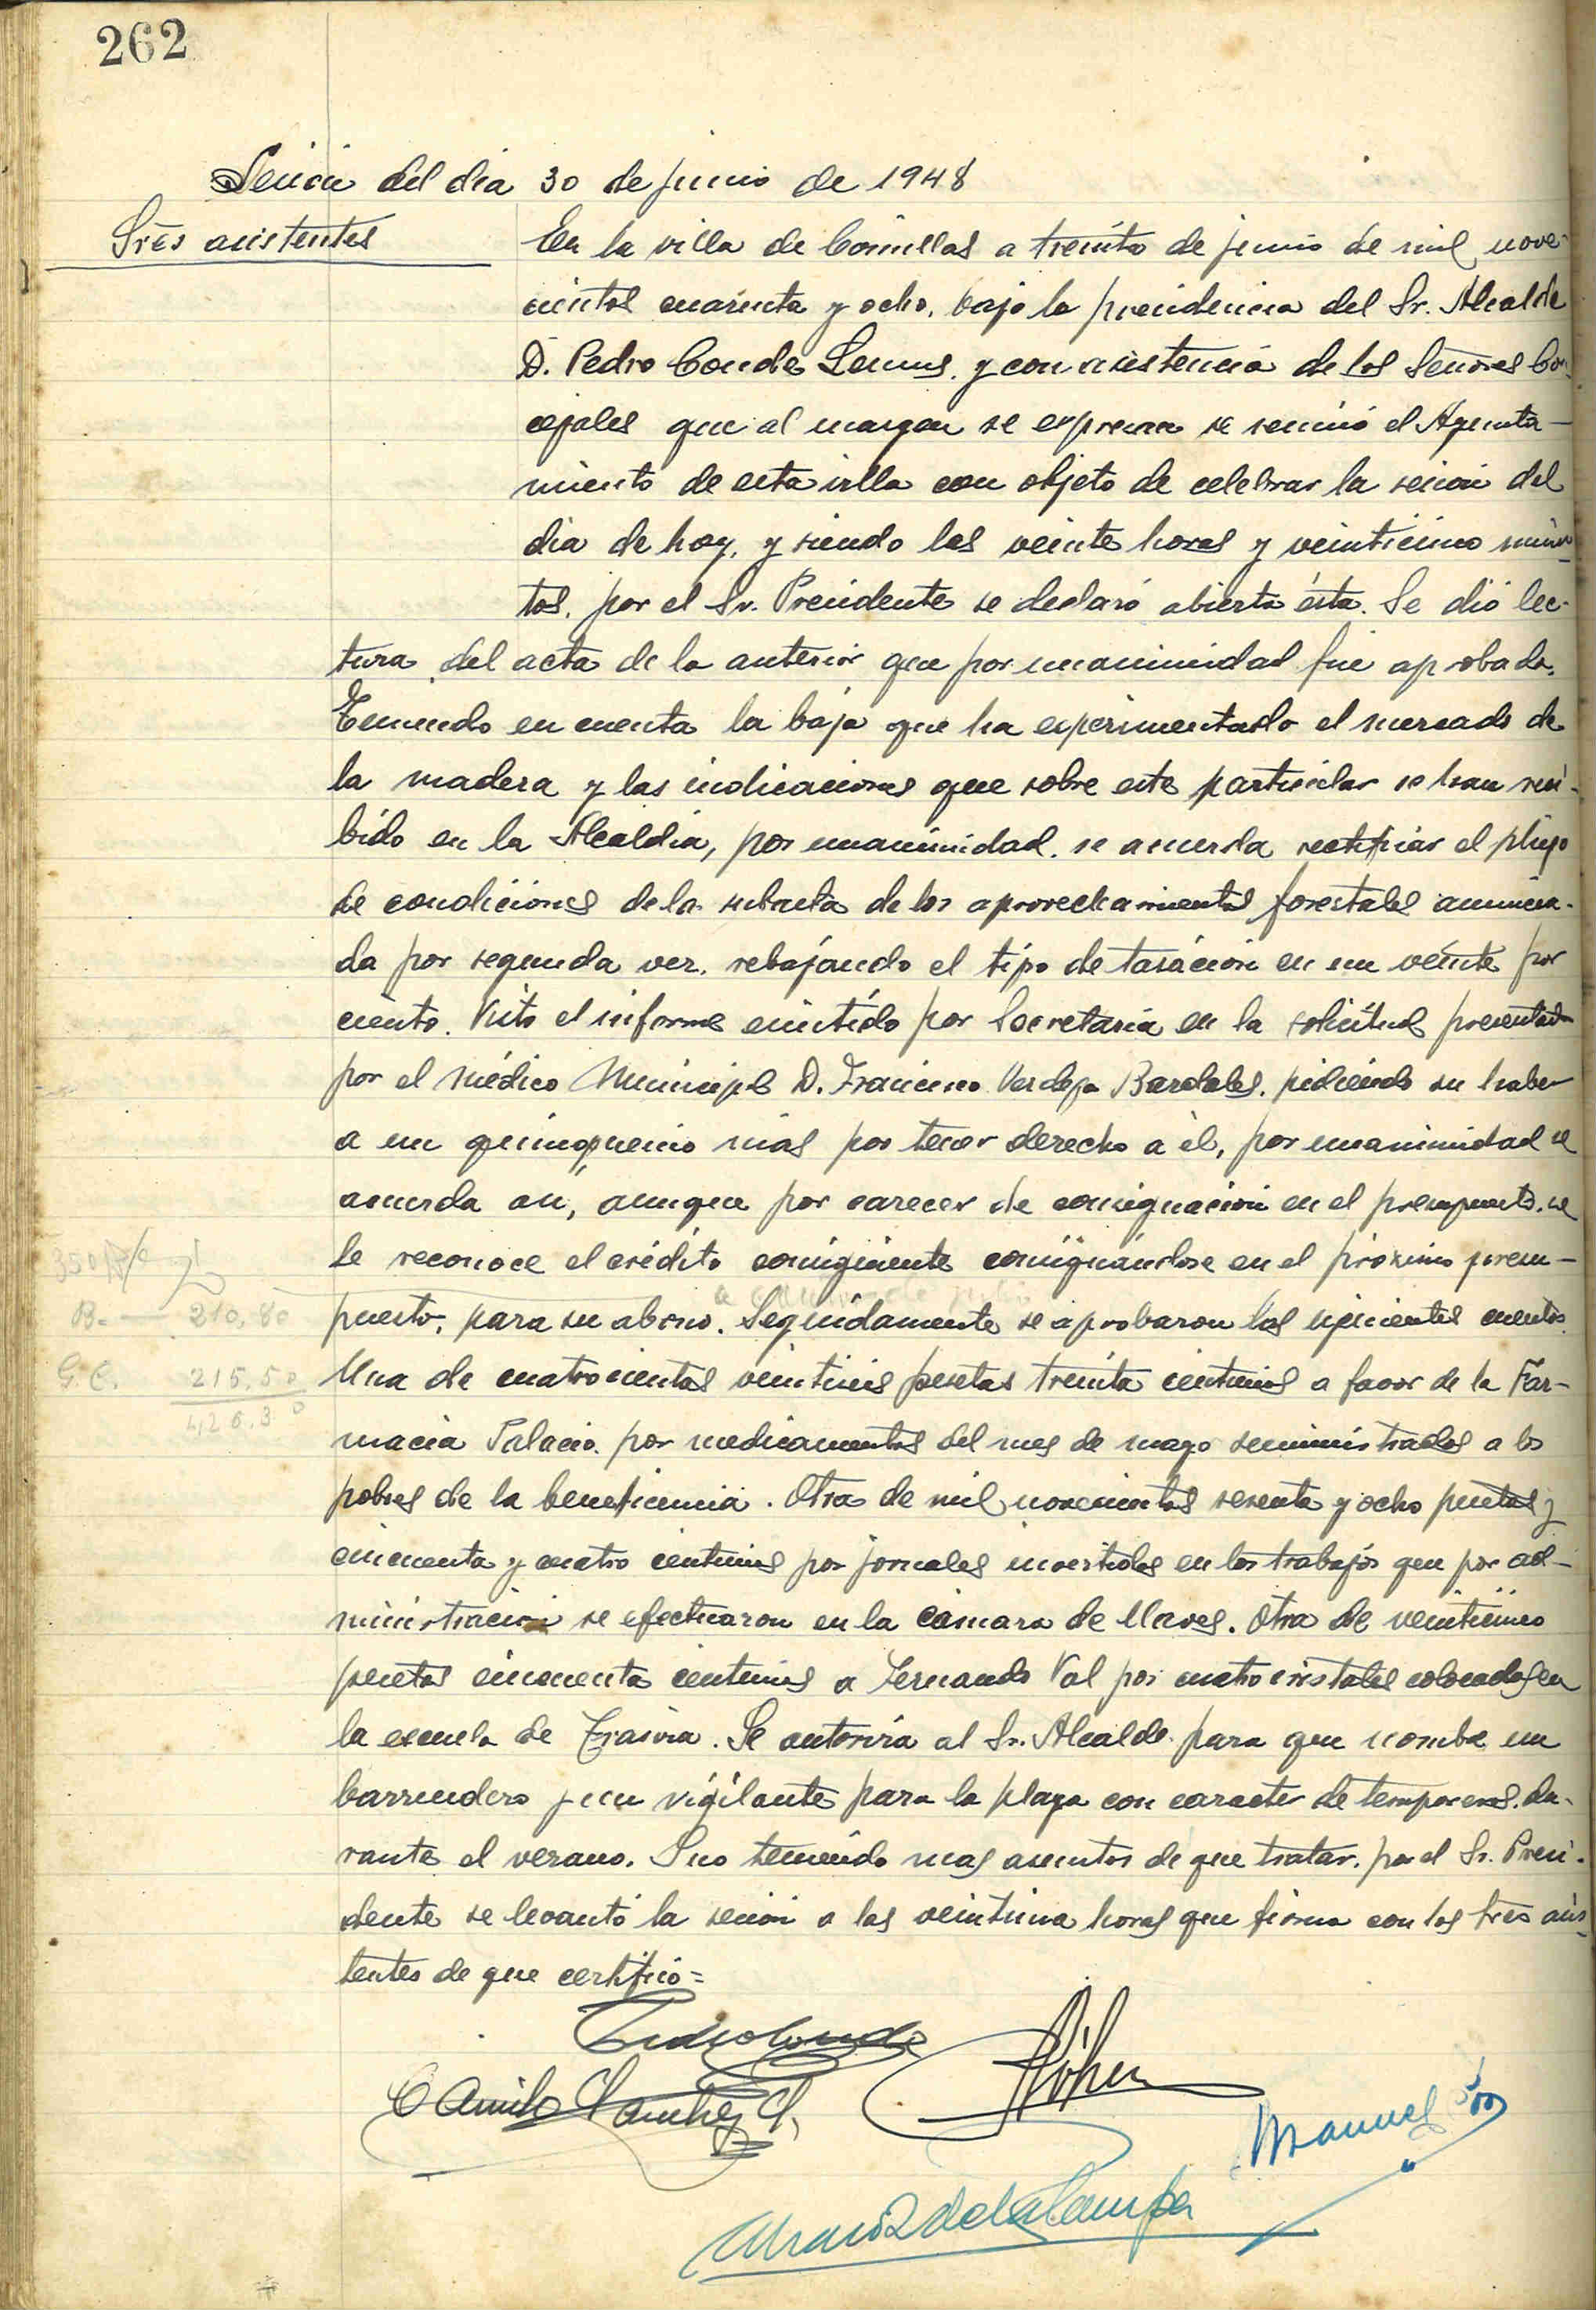 262
Sesión del dia 30 de junio de 1948
Sres asistentes
En la villa de Comillas a treinta de junio de mil nove-
cientos cuarenta y ocho, bajo la presidencia del Sr. Alcalde
D. Pedro Conde Lemus, y con asistencia de los Señores Con-
cejales que al margen se expresan se reunió el Ayunta-
miento de esta villa con objeto de celebrar la sesion del
dia de hoy, y siendo las veinte horas y veinticinco minu-
tos, por el Sr. Presidente se declaró abierta ésta. Se dió lec-
tura del acta de la anterior que por unanimidad fue aprobada.
Teniendo en cuenta la baja que ha experimentado el mercado de
la madera y las indicaciones que sobre este particular se han reci-
bido en la Alcaldia, por unanimidad se acuerda rectificar el pliego
de condiciones de la subasta de los aprovechamientos forestales anuncia-
da por segunda vez, rebajando el tipo de tasación en un veinte por
ciento. Visto el informe emitido por Secretaria en la solicitud presentada
por el médico Municipal D. Francisco Verdeja Bardales, pidiendo su haber
a un quinquenio más por tener derecho a él, por unanimidad se
acuerda asi, aunque por carecer de consignación en el presupuesto, se
le reconoce el crédito consiguiente consignándose en el próximo presu-
B. — 210,80
puesto, para su abono. Seguidamente se aprobaron las siguientes cuentas
G. C. 215,50
Una de cuatrocientas veintiseis pesetas treinta centimos a favor de la Far-
426,30
macia Palacio por medicamentos del mes de mayo suministrados a los
pobres de la beneficencia. Otra de mil novecientas sesenta y ocho pesetas y
cincuenta y cuatro centimos por jornales invertidos en los trabajos que por ad-
ministracion se efectuaron en la cámara de llaves. Otra de veinticinco
pesetas cincuenta centimos a Fernando Val por cuatro cristales colocados en
la escuela de Trasvia. Se autoriza al Sr. Alcalde para que nombre un
barrendero y un vigilante para la playa con caracter de temporeros, du-
rante el verano. Y no teniendo mas asuntos de que tratar, por el Sr. Presi-
dente se levantó la sesion a las veintiuna horas que firma con los Sres asis-
tentes de que certifico=
Pedro Conde
Camilo Sanchez
Manuel
de la Campa